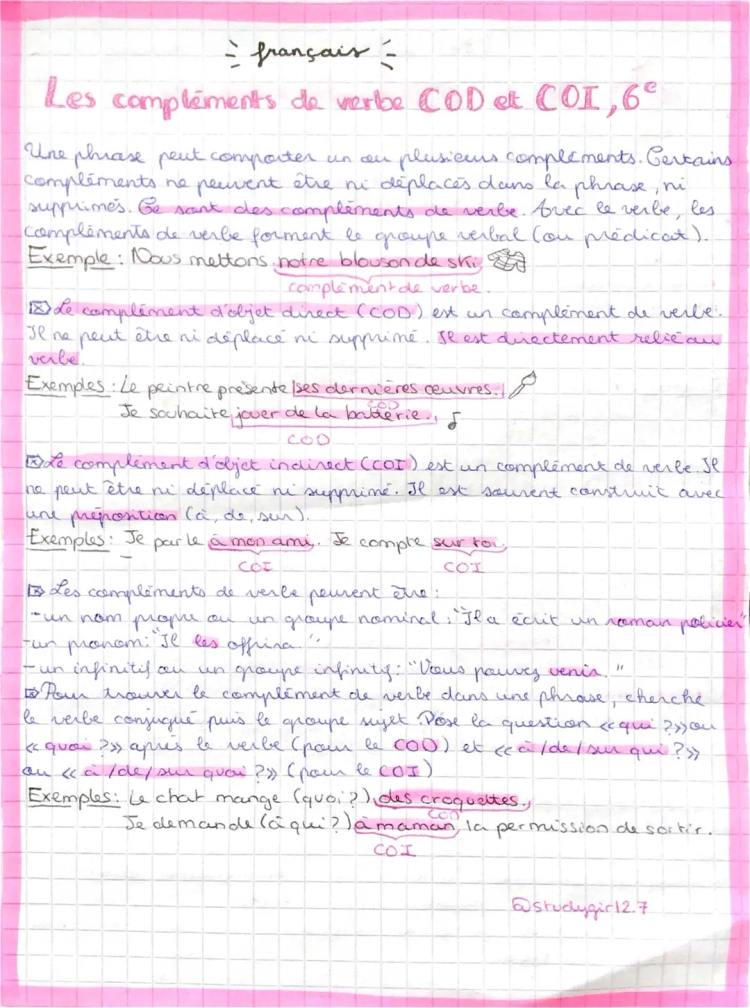 français
Les compléments de verbe COD et COI, 6e
Une phrase peut comporter un ou plusieurs compléments. Certains
compléments ne peuvent être ni déplacés dans la phrase, ni
supprimés. Ce sont des compléments de verbe. Avec le verbe, les
compléments de verbe forment le groupe verbal (ou prédicat).
Exemple : Nous mettons notre blouson de ski.
complément de verbe.
Le complément d'objet direct (COD) est un complément de verbe.
Il ne peut être ni déplacé ni supprimé. Il est directement relié au
verbe.
Exemples : Le peintre présente ses dernières œuvres.
COD
Je souhaite jouer de la batterie.
COD
Le complément d'objet indirect (COI) est un complément de verbe. Il
ne peut être ni déplacé ni supprimé. Il est souvent construit avec
une préposition (à, de, sur).
Exemples : Je parle à mon ami. Je compte sur toi.
COI COI
Les compléments de verbe peuvent être :
- un nom propre ou un groupe nominal : "Il a écrit un roman policier"
- un pronom : "Il les offrira."
- un infinitif ou un groupe infinitif : "Vous pouvez venir."
Pour trouver le complément de verbe dans une phrase, cherche
le verbe conjugué puis le groupe sujet Pose la question « qui ?» ou
« quoi ?» après le verbe (pour le COD) et « à/de/sur qui ?»
ou « à/de/sur quoi ?» (pour le COI)
Exemples : Le chat mange (quoi?) des croquettes.
COD
Je demande (à qui?) à maman la permission de sortir.
COI
@studygirl2.7